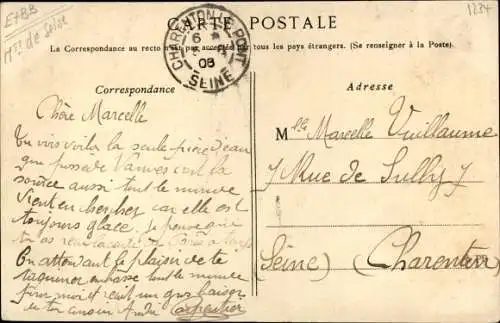 E+BB
Mt de Seine
1234
CARTE POSTALE
La Correspondance au recto n'est pas acceptée par tous les pays étrangers. (Se renseigner à la Poste).
CHARENTON-LE-PONT
6
08
SEINE
Correspondance
Adresse
Chère Marcelle
Tu vois voilà la seule pièce d'eau
que possède Vanves c'est la
source aussi tout le monde
vient en chercher car elle est
toujours glacé. Je pense que
tu as
En attendant le plaisir de te
taquiner embrasse tout le monde
pour moi et reçoit un gros baiser
de ton cousin André Carpentier
Mlle Marcelle Vuillaume
7 Rue de Sully 7
(Seine) Charenton